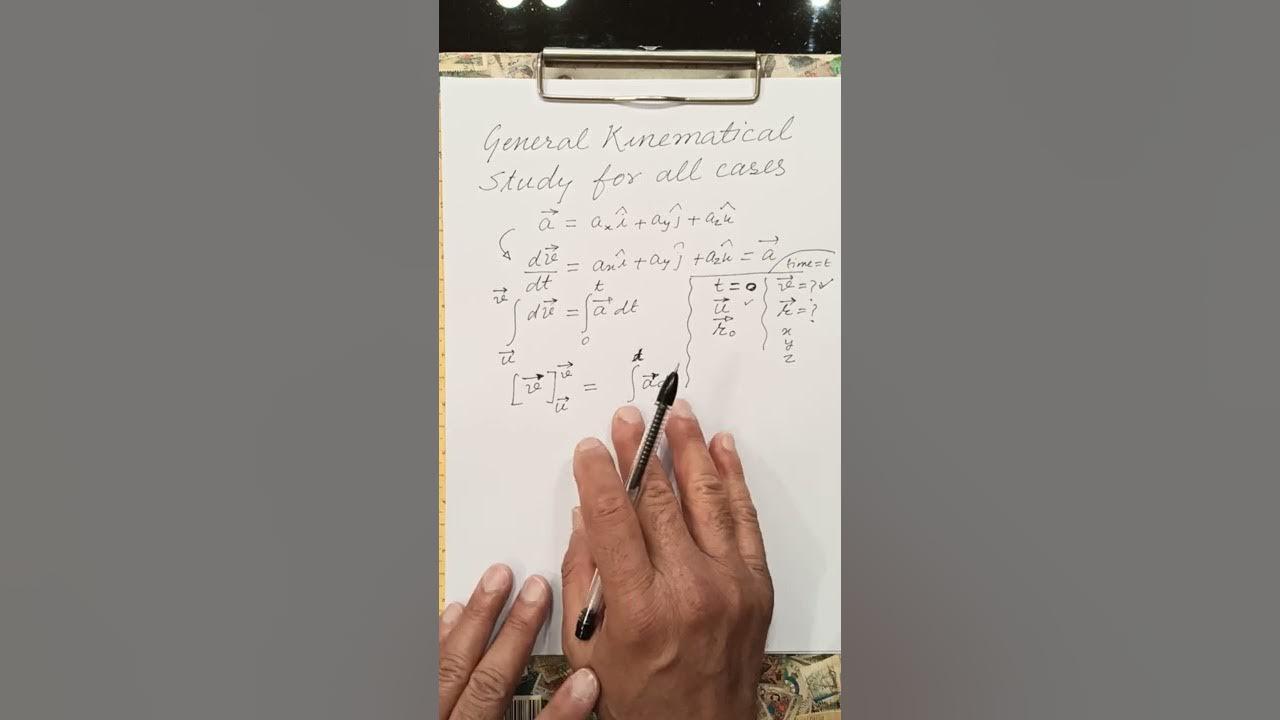 General Kinematical
Study for all cases
a⃗ = aₓ î + a_y ĵ + a_z k̂
dv⃗/dt = aₓ î + a_y ĵ + a_z k̂ = a⃗
∫_u⃗^v⃗ dv⃗ = ∫₀^t a⃗ dt
[v⃗]_u⃗^v⃗ = ∫^t a⃗
time=t
t = 0
u⃗ ✓
r⃗₀
v⃗ = ? ✓
r⃗ = ?
x
y
z